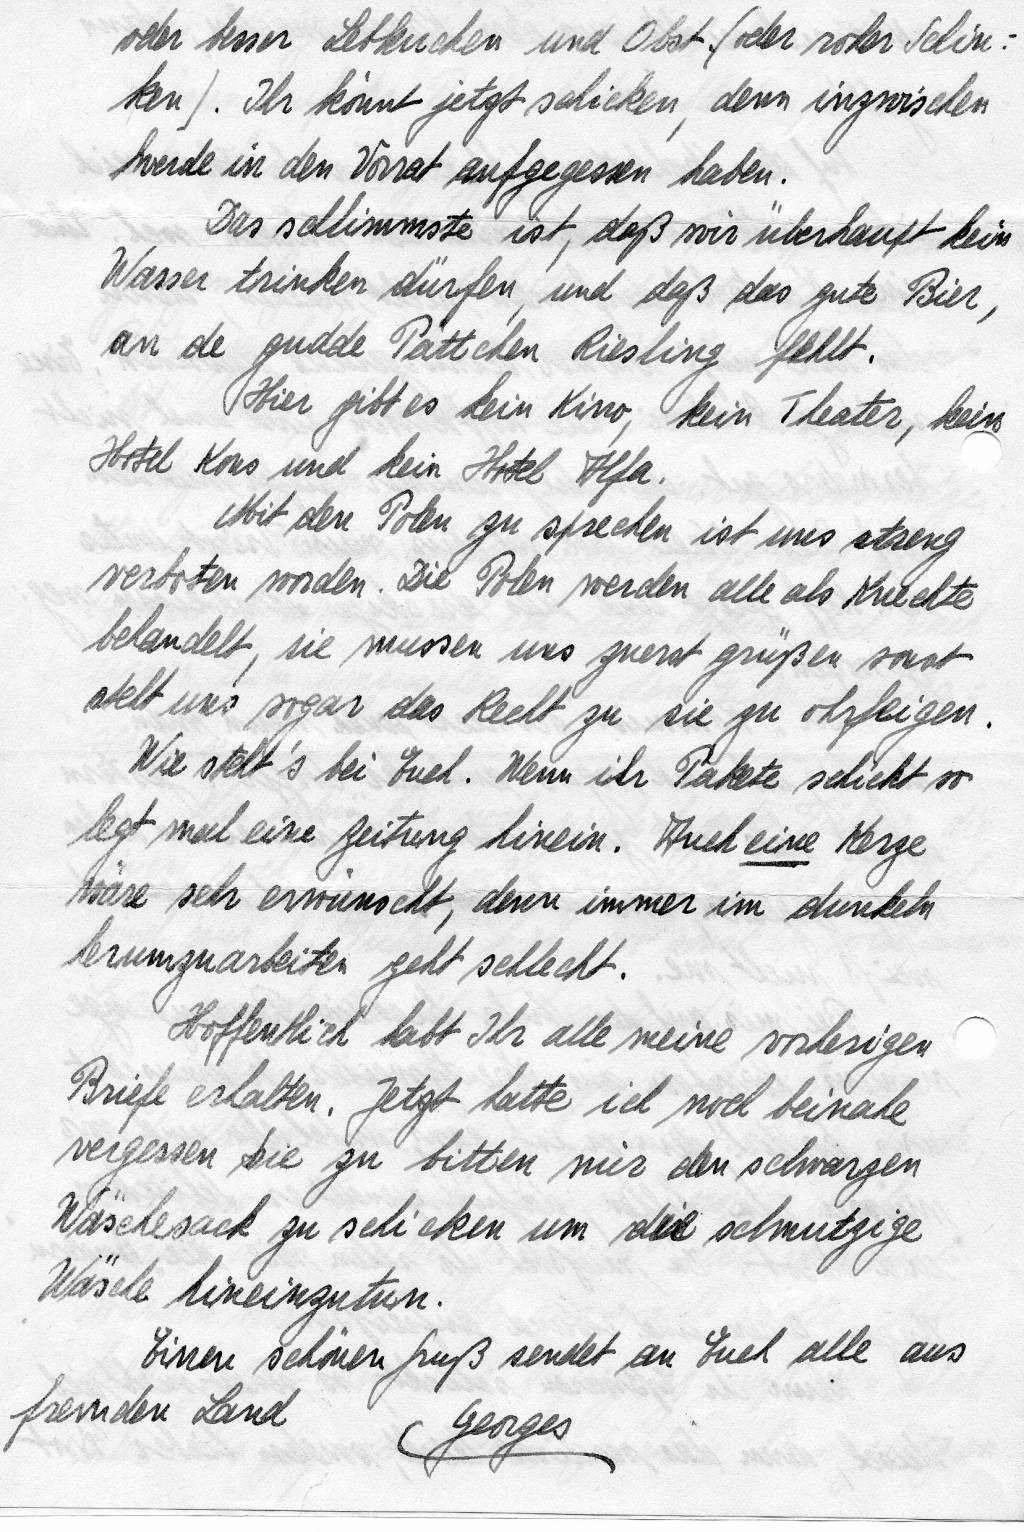 oder besser Lebkuchen und Obst. (oder roher Schin:
ken). Ihr könnt jetzt schicken, denn inzwischen
werde in den Vorrat aufgegessen haben.
Das schlimmste ist, daß wir überhauft kein
Wasser trinken dürfen, und daß das gute Bier,
an de gudde Pättchen Riesling fehlt.
Hier gibt es kein Kino, kein Theater, kein
Hotel Kons und kein Hotel Alfa.
Mit den Polen zu sprechen ist uns streng
verboten worden. Die Polen werden alle als Knechte
behandelt, sie mussen uns zuerst grüßen sonst
steht uns sogar das Recht zu sie zu ohrfeigen.
Wie steht's bei Euch. Wenn ihr Pakete schickt so
legt mal eine Zeitung hinein. Auch eine Kerze
wäre sehr erwünscht, denn immer im dunkeln
herumzuarbeiten geht schlecht.
Hoffentlich habt Ihr alle meine vorherigen
Briefe erhalten. Jetzt hatte ich noch beinahe
vergessen sie zu bitten mir den schwarzen
Wäschesack zu schicken um die schmutzige
Wäsche hineinzutun.
Einen schönen Gruß sendet an Euch alle aus
fremden Land
Georges